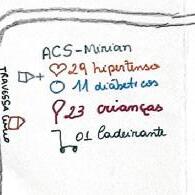 ACS-Mirian
29 hipertenso
11 diabeticos
23 crianças
01 cadeirante
TRAVESSA